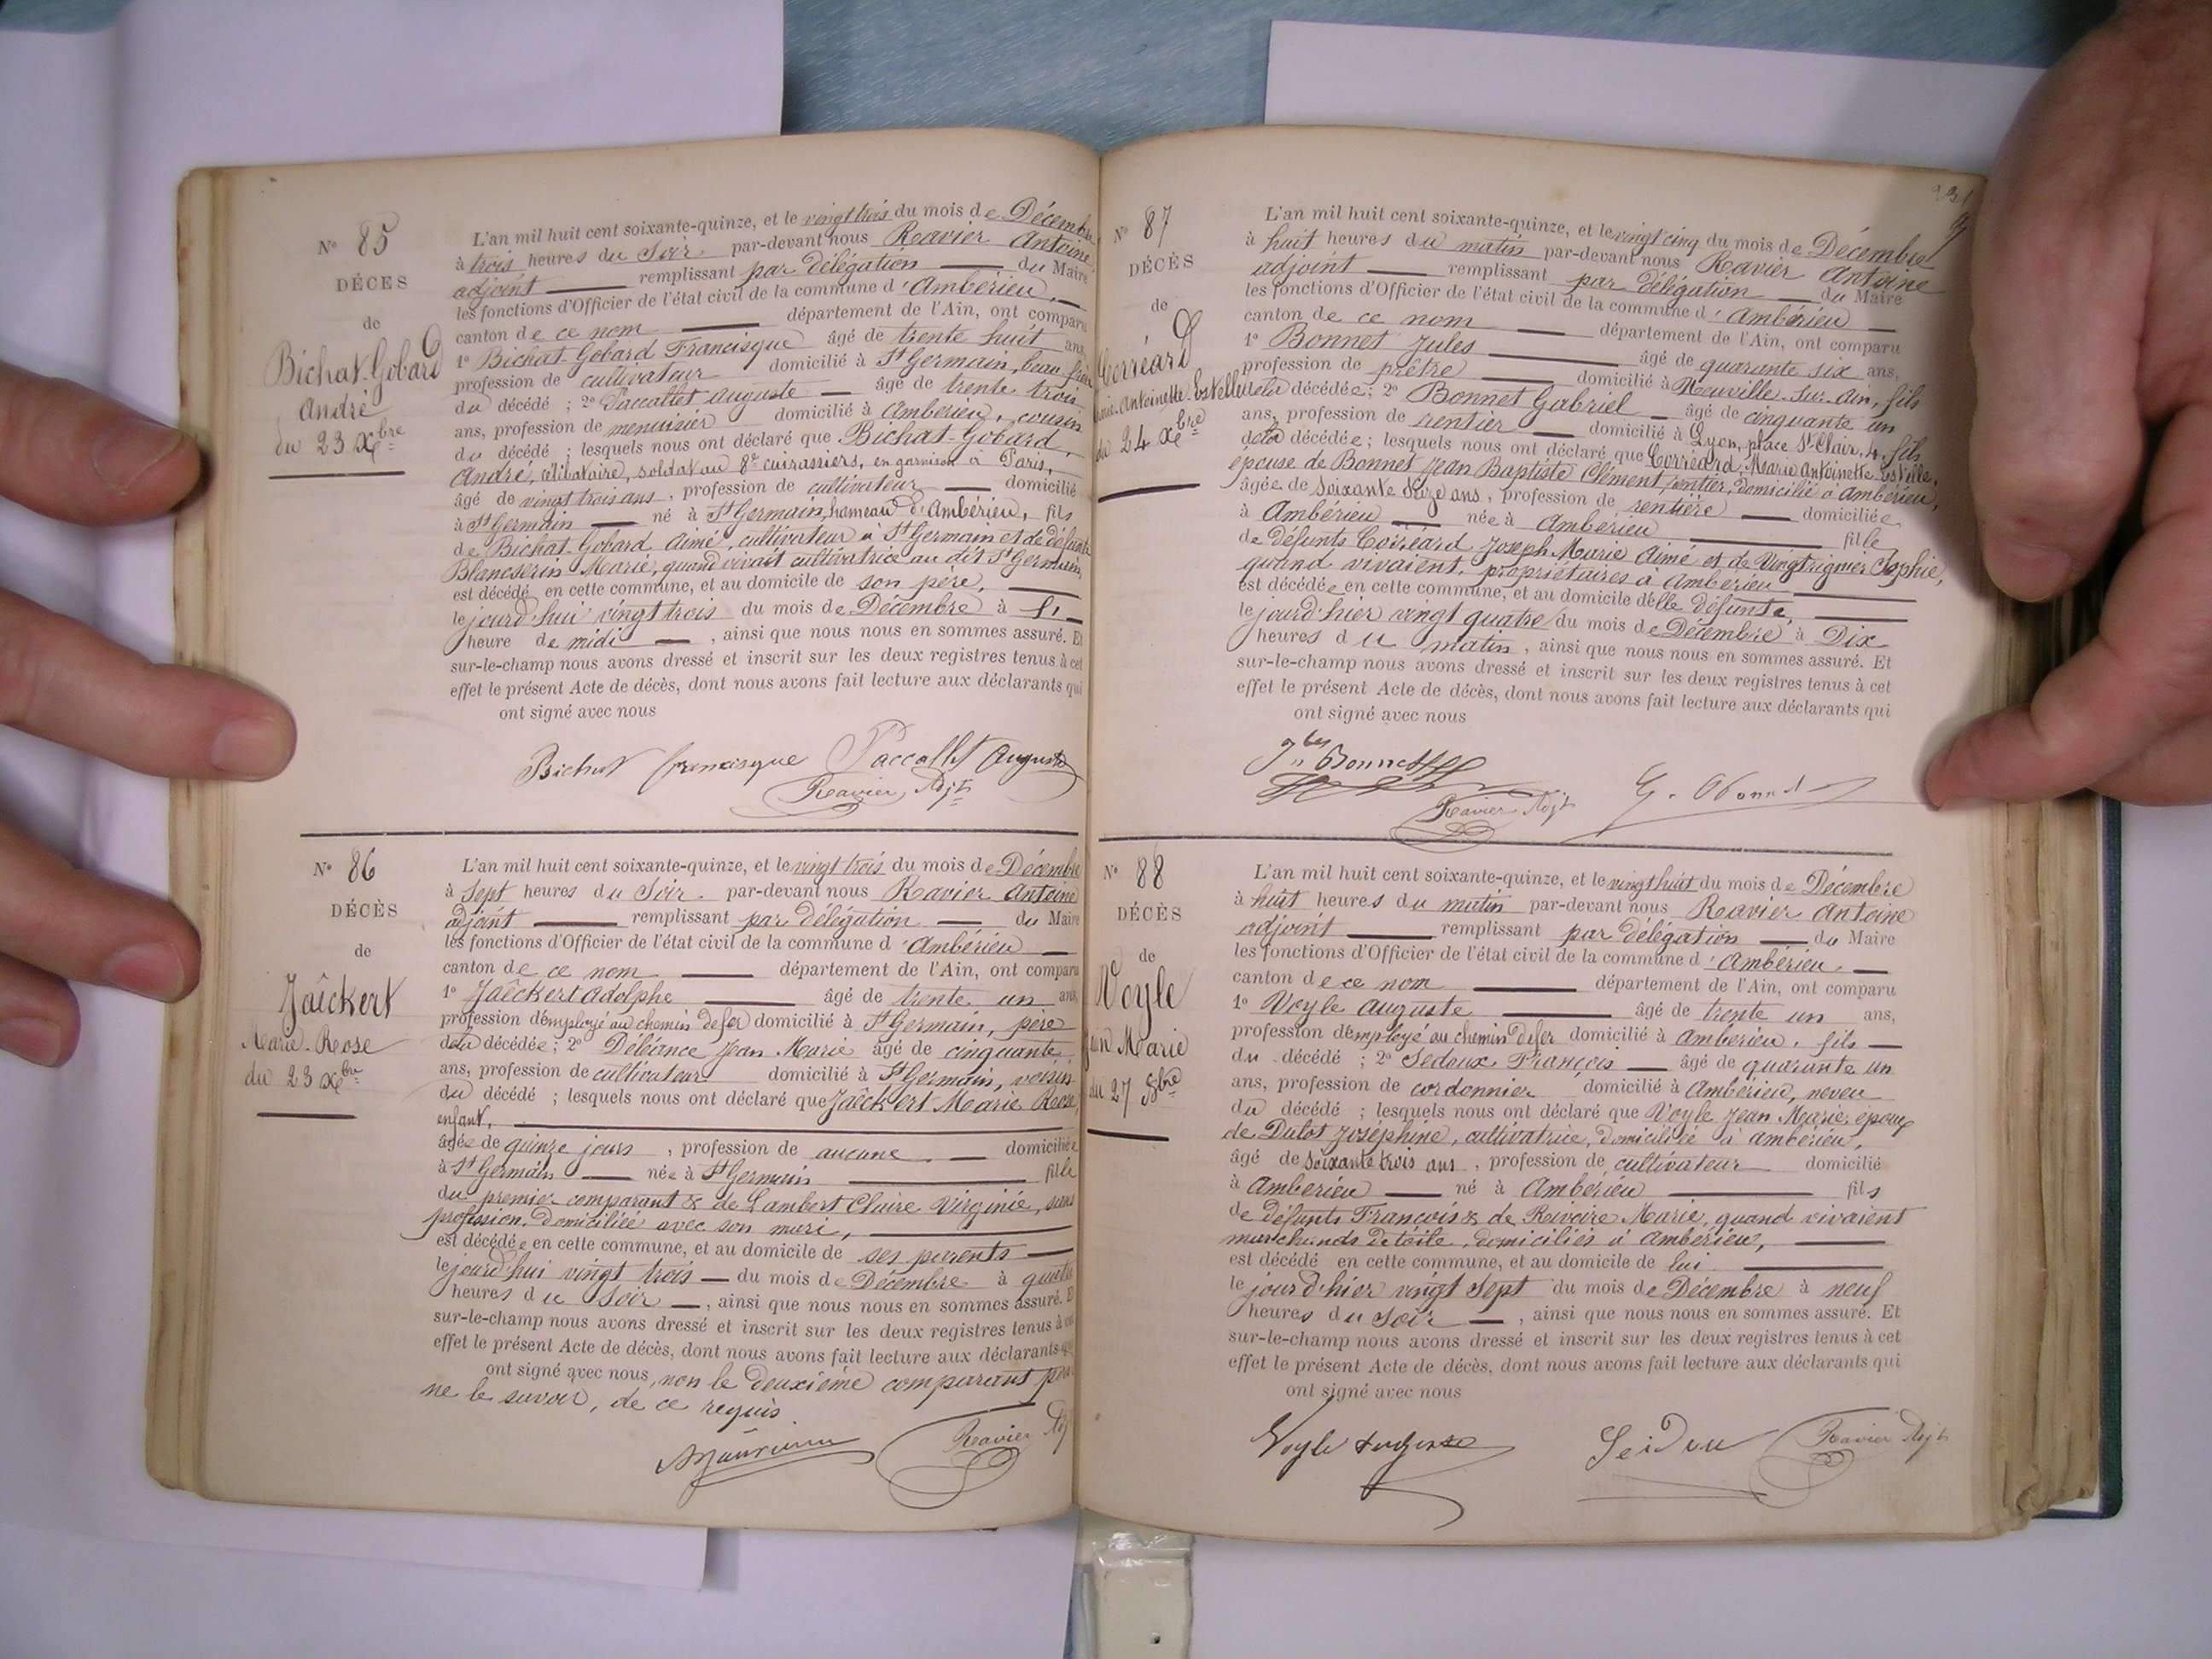 N° 85
DÉCÈS
de
Bichat-Gobard
André
du 23 Xbre
L'an mil huit cent soixante-quinze, et le vingt trois du mois de Décembre
à trois heures du Soir par-devant nous Ravier Antoine
adjoint remplissant par délégation du Maire
les fonctions d'Officier de l'état civil de la commune d'Ambérieu,
canton de ce nom département de l'Ain, ont comparu
1° Bichat-Gobard Francisque âgé de trente huit ans,
profession de cultivateur domicilié à St Germain, beau frère
du décédé ; 2° Paccallet Auguste âgé de trente trois
ans, profession de menuisier domicilié à Ambérieu, cousin
du décédé ; lesquels nous ont déclaré que Bichat-Gobard,
André, célibataire, soldat au 8e cuirassiers, en garnison à Paris,
âgé de vingt trois ans, profession de cultivateur domicilié
à St Germain né à St Germain, hameau d'Ambérieu, fils
de Bichat-Gobard Aimé, cultivateur à St Germain et de défunte
Blancserin Marie, quand vivait cultivatrice au dit St Germain,
est décédé en cette commune, et au domicile de son père,
le jourd'hui vingt trois du mois de Décembre à
heure de midi, ainsi que nous nous en sommes assuré. Et
sur-le-champ nous avons dressé et inscrit sur les deux registres tenus à cet
effet le présent Acte de décès, dont nous avons fait lecture aux déclarants qui
ont signé avec nous
Bichat francisque Paccallet Auguste
Ravier Adjt
N° 86
DÉCÈS
de
Jaëckert
Marie-Rose
du 23 Xbre
L'an mil huit cent soixante-quinze, et le vingt trois du mois de Décembre
à Sept heures du Soir. par-devant nous Ravier Antoine
adjoint remplissant par délégation du Maire
les fonctions d'Officier de l'état civil de la commune d'Ambérieu
canton de ce nom département de l'Ain, ont comparu
1° Jaëckert Adolphe âgé de trente un ans,
profession d'employé au chemin de fer domicilié à St Germain, père
de la décédée; 2° Déléance Jean Marie âgé de cinquante
ans, profession de cultivateur domicilié à St Germain, voisin
du décédé ; lesquels nous ont déclaré que Jaëckert Marie Rose,
enfant,
âgée de quinze jours, profession de aucune domiciliée
à St Germain née à St Germain fille
du premier comparant & de Lambert Claire Virginie, sans
profession, domiciliée avec son mari,
est décédée en cette commune, et au domicile de ses parents
le jourd'hui vingt trois du mois de Décembre à quatre
heures du Soir, ainsi que nous nous en sommes assuré. Et
sur-le-champ nous avons dressé et inscrit sur les deux registres tenus à cet
effet le présent Acte de décès, dont nous avons fait lecture aux déclarants qui
ont signé avec nous, non le deuxième comparant pour
ne le savoir, de ce requis.
Ravier Adj
N° 87
DÉCÈS
de
Corréard
Marie-Antoinette-Estelle
du 24 Xbre
L'an mil huit cent soixante-quinze, et le vingt cinq du mois de Décembre
à huit heures du matin par-devant nous Ravier Antoine
adjoint remplissant par délégation du Maire
les fonctions d'Officier de l'état civil de la commune d'Ambérieu
canton de ce nom département de l'Ain, ont comparu
1° Bonnet Jules âgé de quarante six ans,
profession de prêtre domicilié à Neuville-sur-Ain, fils
de la décédée; 2° Bonnet Gabriel âgé de cinquante un
ans, profession de rentier domicilié à Lyon, place St Clair, 4, fils
de la décédée; lesquels nous ont déclaré que Corréard, Marie Antoinette Estelle,
épouse de Bonnet Jean Baptiste Clément, rentier, domicilié à Ambérieu,
âgée de soixante ans, profession de rentière domiciliée
à Ambérieu née à Ambérieu fille
de défunts Corréard Joseph Marie Aimé et de Vingtrignier Sophie,
quand vivaient, propriétaires à Ambérieu
est décédée en cette commune, et au domicile d'elle défunte,
le jourd'hier vingt quatre du mois de Décembre à Dix
heures du matin, ainsi que nous nous en sommes assuré. Et
sur-le-champ nous avons dressé et inscrit sur les deux registres tenus à cet
effet le présent Acte de décès, dont nous avons fait lecture aux déclarants qui
ont signé avec nous
Jles Bonnet
Ravier Adjt
G. Bonnet
N° 88
DÉCÈS
de
Voyle
Jean Marie
du 27 Xbre
L'an mil huit cent soixante-quinze, et le vingt huit du mois de Décembre
à huit heures du matin par-devant nous Ravier Antoine
adjoint remplissant par délégation du Maire
les fonctions d'Officier de l'état civil de la commune d'Ambérieu.
canton de ce nom département de l'Ain, ont comparu
1° Voyle Auguste âgé de trente un ans,
profession d'employé au chemin de fer domicilié à Ambérieu, fils
du décédé ; 2° Sedoux François âgé de quarante un
ans, profession de cordonnier domicilié à Ambérieu, neveu
du décédé ; lesquels nous ont déclaré que Voyle Jean Marie, époux
de Dulot Joséphine, cultivatrice, domiciliée à Ambérieu,
âgé de soixante trois ans, profession de cultivateur domicilié
à Ambérieu né à Ambérieu fils
de défunts François & de Revoire Marie, quand vivaient
marchands de toile, domiciliés à Ambérieu,
est décédé en cette commune, et au domicile de lui
le jourd'hier vingt Sept du mois de Décembre à neuf
heures du Soir, ainsi que nous nous en sommes assuré. Et
sur-le-champ nous avons dressé et inscrit sur les deux registres tenus à cet
effet le présent Acte de décès, dont nous avons fait lecture aux déclarants qui
ont signé avec nous
Voyle Auguste
Ravier Adjt